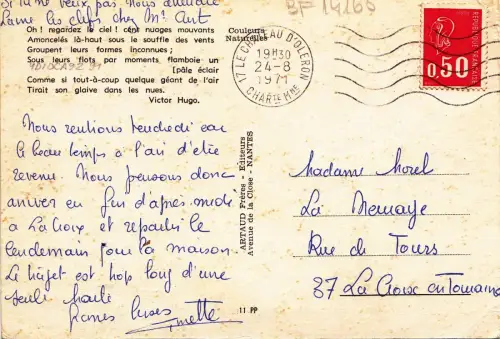 Si tu ne veux pas nous attendre
Laisse les clefs chez Mr Aut
BF 14260
Oh ! regardez le ciel ! cent nuages mouvants
Amoncelés là-haut sous le souffle des vents
Groupent leurs formes inconnues ;
Sous leurs flots par moments flamboie un
[pâle éclair
Comme si tout-à-coup quelque géant de l'air
Tirait son glaive dans les nues.
Victor Hugo.
Couleurs
Naturelles
17 LE CHATEAU D'OLERON
19H30
24-8
1971
CHARTE Mme
REPUBLIQUE FRANÇAISE
0,50
Nous rentrons vendredi car
le beau temps a l'air d'être
revenu. Nous pensons donc
arriver en fin d'après midi
à La Croix et repartir le
lendemain pour la maison.
Le trajet est trop long d'une
seule traite
Grosses bises
ARTAUD Frères - Editeurs
Avenue de la Close - NANTES
11 PP
Madame Morel
La
Rue de Tours
37 La Croix en Touraine